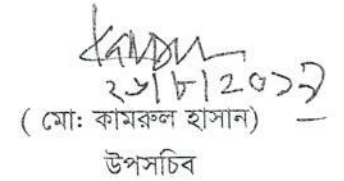 ২৬|৮|২০১৯
( মো: কামরুল হাসান)
উপসচিব